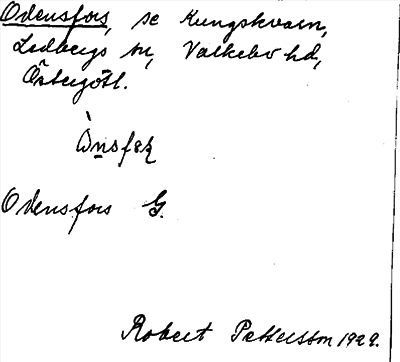 Odensfors, se Kungskvarn,
Ledbergs sn, Valkebo hd,
Östergötl.
Odensfors G.
Robert Pettersson 1929.